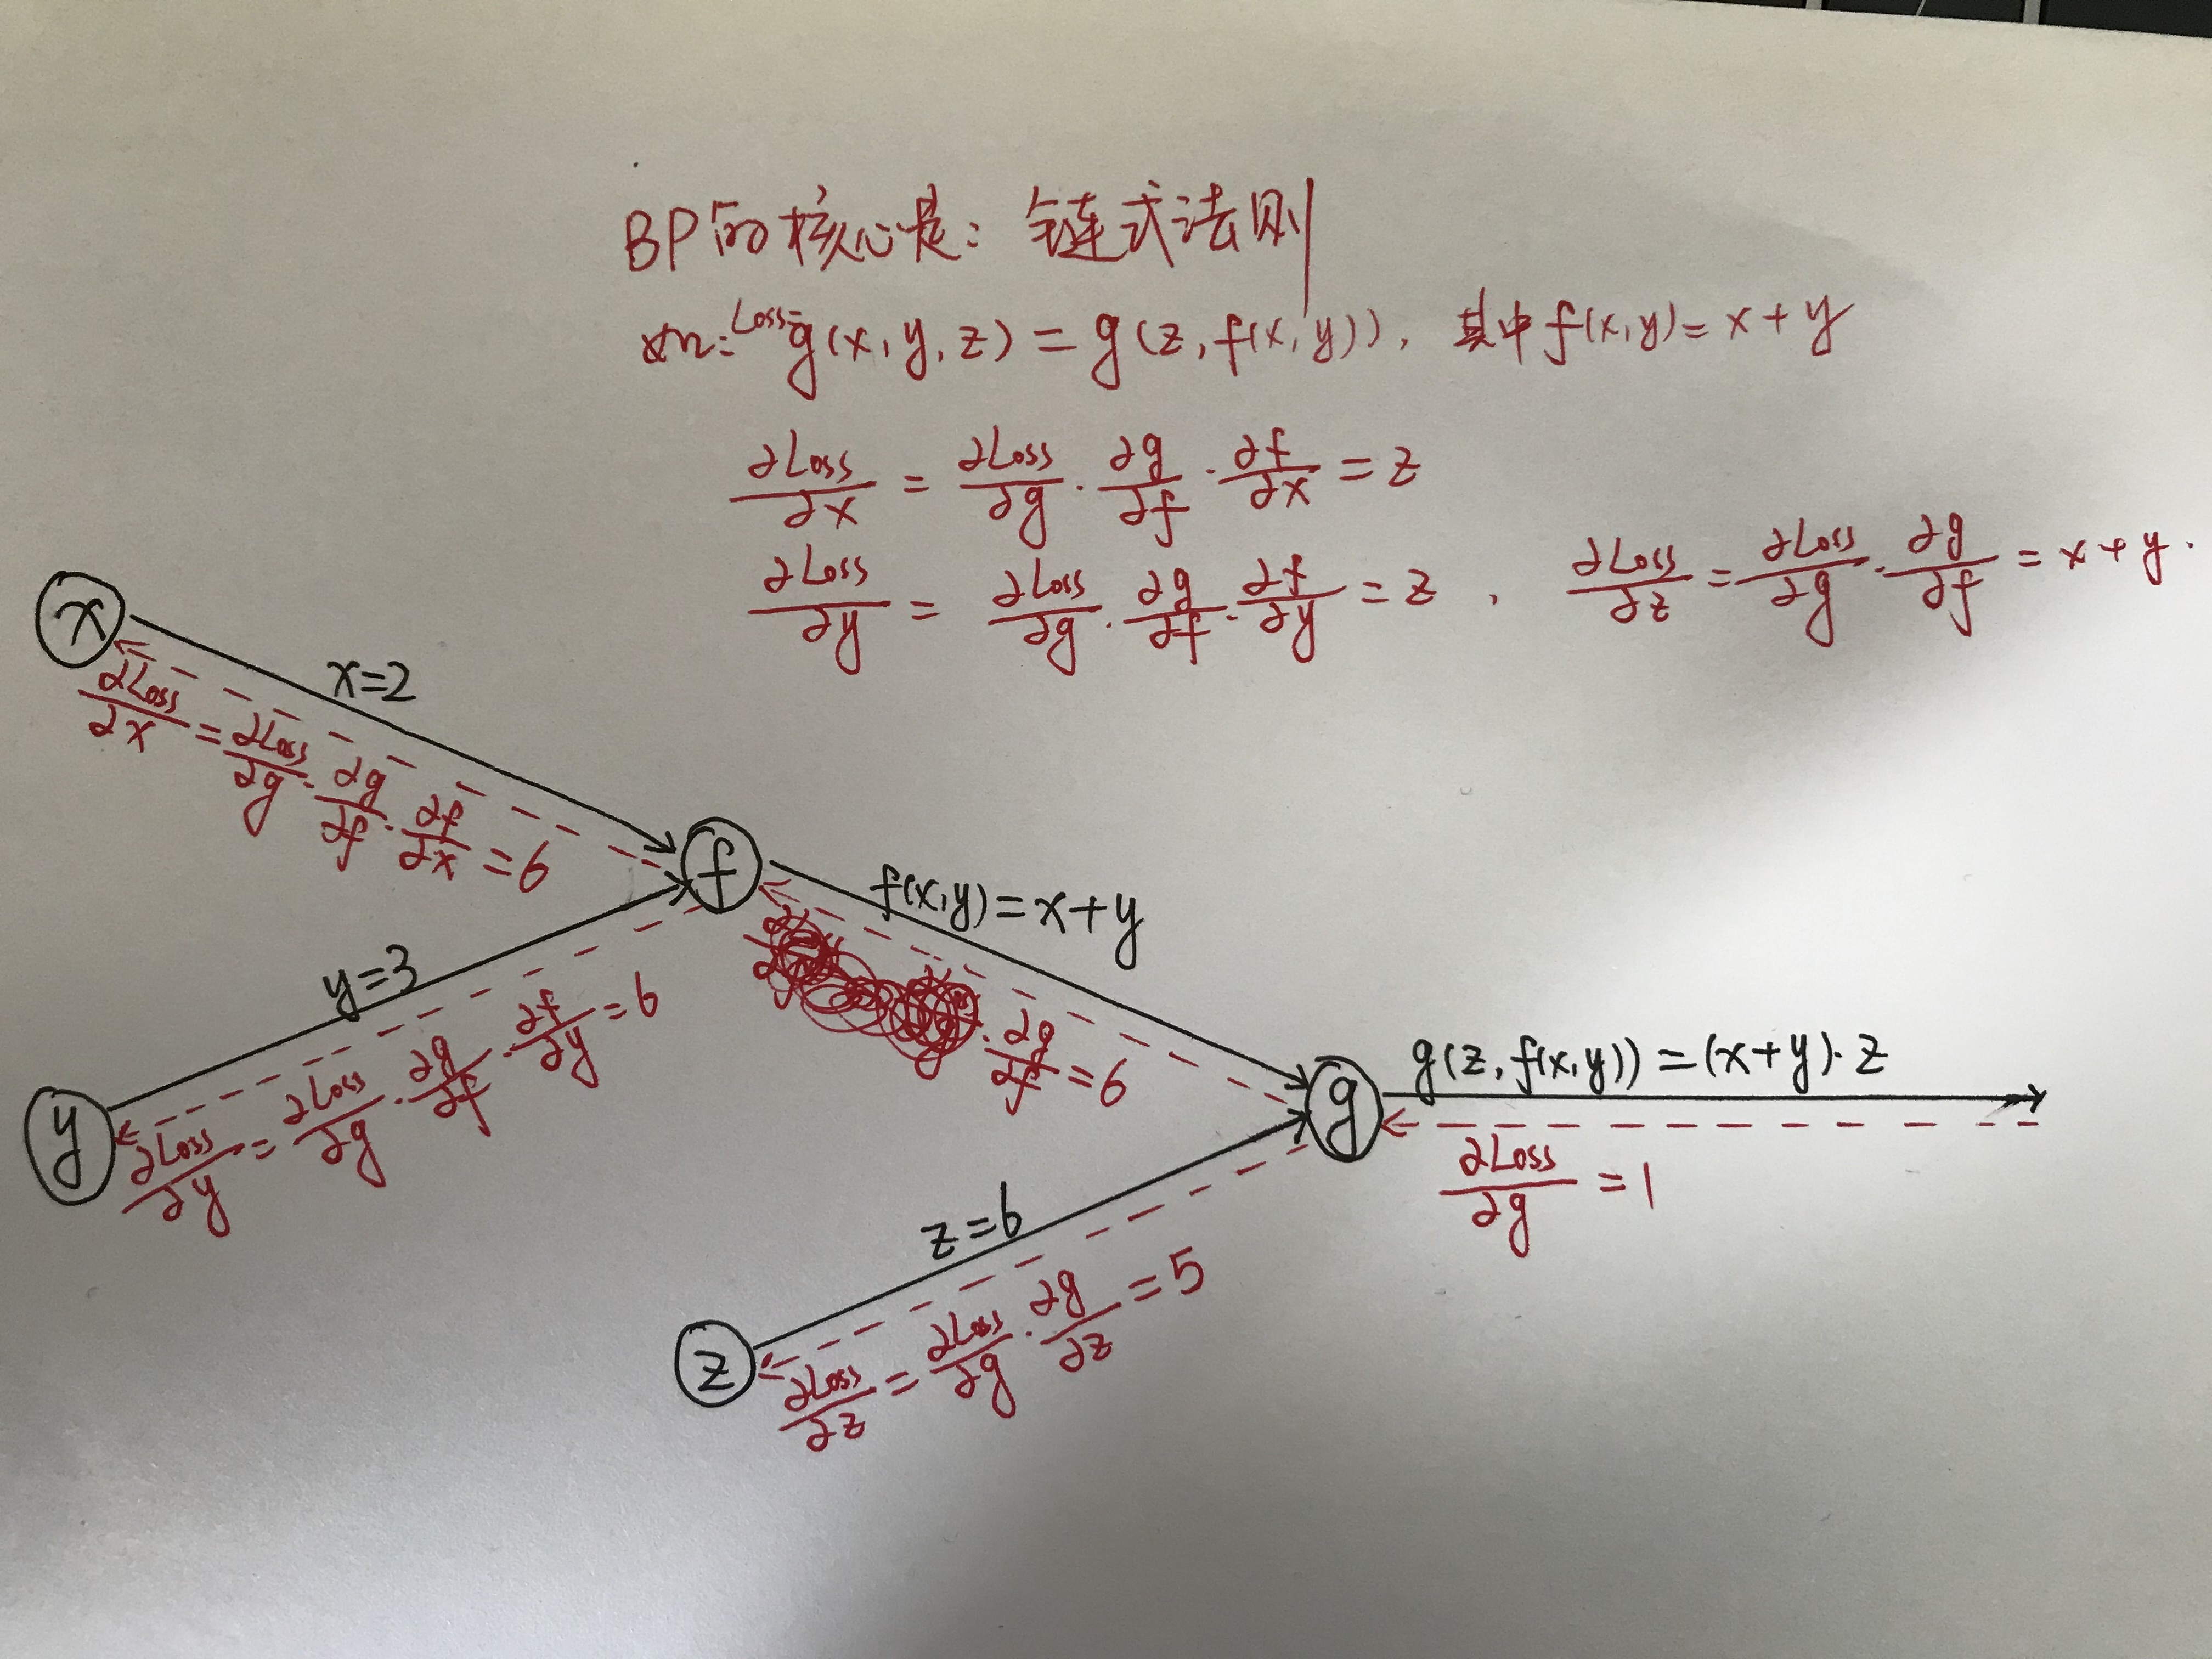 BP的核心是：链式法则
如：Loss=g(x,y,z)=g(z,f(x,y))，其中f(x,y)=x+y
∂Loss/∂x = ∂Loss/∂g · ∂g/∂f · ∂f/∂x = z
∂Loss/∂y = ∂Loss/∂g · ∂g/∂f · ∂f/∂y = z , ∂Loss/∂z = ∂Loss/∂g · ∂g/∂f = x+y.
x
x=2
∂Loss/∂x = ∂Loss/∂g · ∂g/∂f · ∂f/∂x = 6
f
f(x,y)=x+y
· ∂g/∂f = 6
y=3
y
∂Loss/∂y = ∂Loss/∂g · ∂g/∂f · ∂f/∂y = 6
g
g(z,f(x,y))=(x+y)·z
∂Loss/∂g = 1
z=6
z
∂Loss/∂z = ∂Loss/∂g · ∂g/∂z = 5